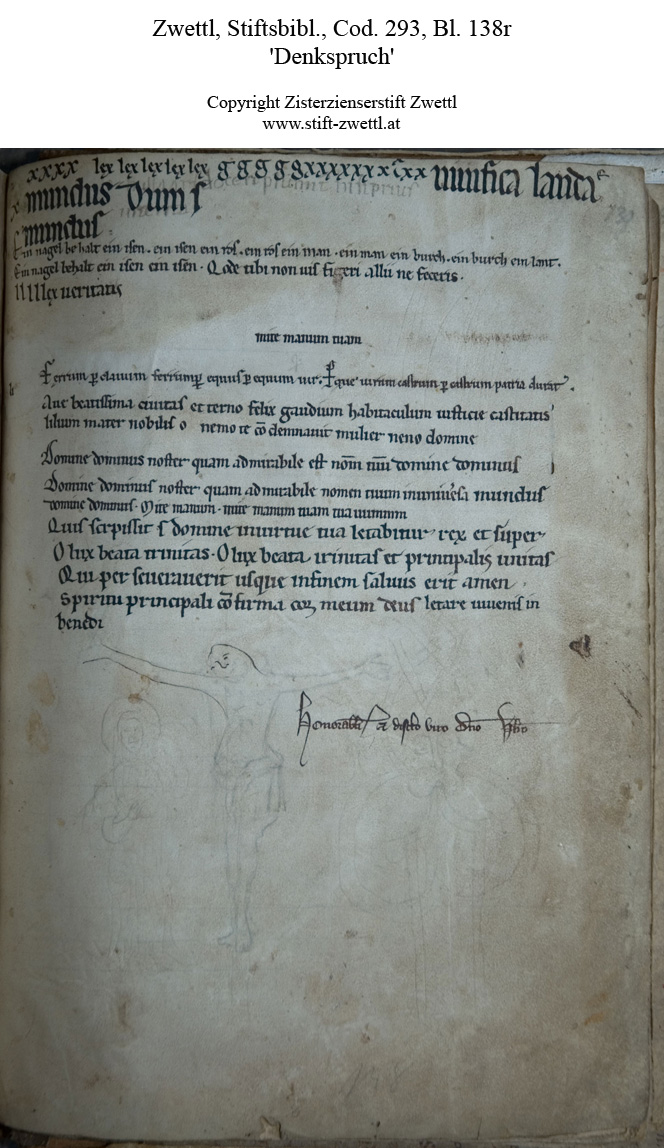 Zwettl, Stiftsbibl., Cod. 293, Bl. 138r
'Denkspruch'
Copyright Zisterzienserstift Zwettl
www.stift-zwettl.at
xxxx lex lex lex lex lex g g g g g xxxxxx x xx
mundus Dum s
mundus
Ein nagel behalt ein isen. ein isen ein ros. ein ros ein man. ein man ein burch. ein burch ein lant.
Ein nagel behalt ein isen ein isen. Qode tibi non uis fieri allii ne feceris.
llllex ueritatis
mitte manum tuam
Ferrum ꝑ clauum ferrumꝙ equus ꝑ equum uir. ꝑque uirum castrum ꝑ castrum patria durat.
Aue beatissima ciuitas et terno felix gaudium habitaculum iusticie castitatis
lilium mater nobilis o nemo te cōdemnauit mulier neno domine
Domine dominus noster quam admirabile est nom̄ tuū domine dominus
Domine dominus noster quam admirabile nomen tuum in mundus
domine dominus. Mitte manum. mitte manum tuam
Quis scripssit s domine inuirtue tua letabitur rex et super
O lux beata trinitas. O lux beata trinitas et principalis unitas
Qui per seuerauerit usque infinem saluus erit amen
Spiritu principali cōfirma cor meum deus letare iuuenis in
benedi
Honorabili et discreto viro dn̄o